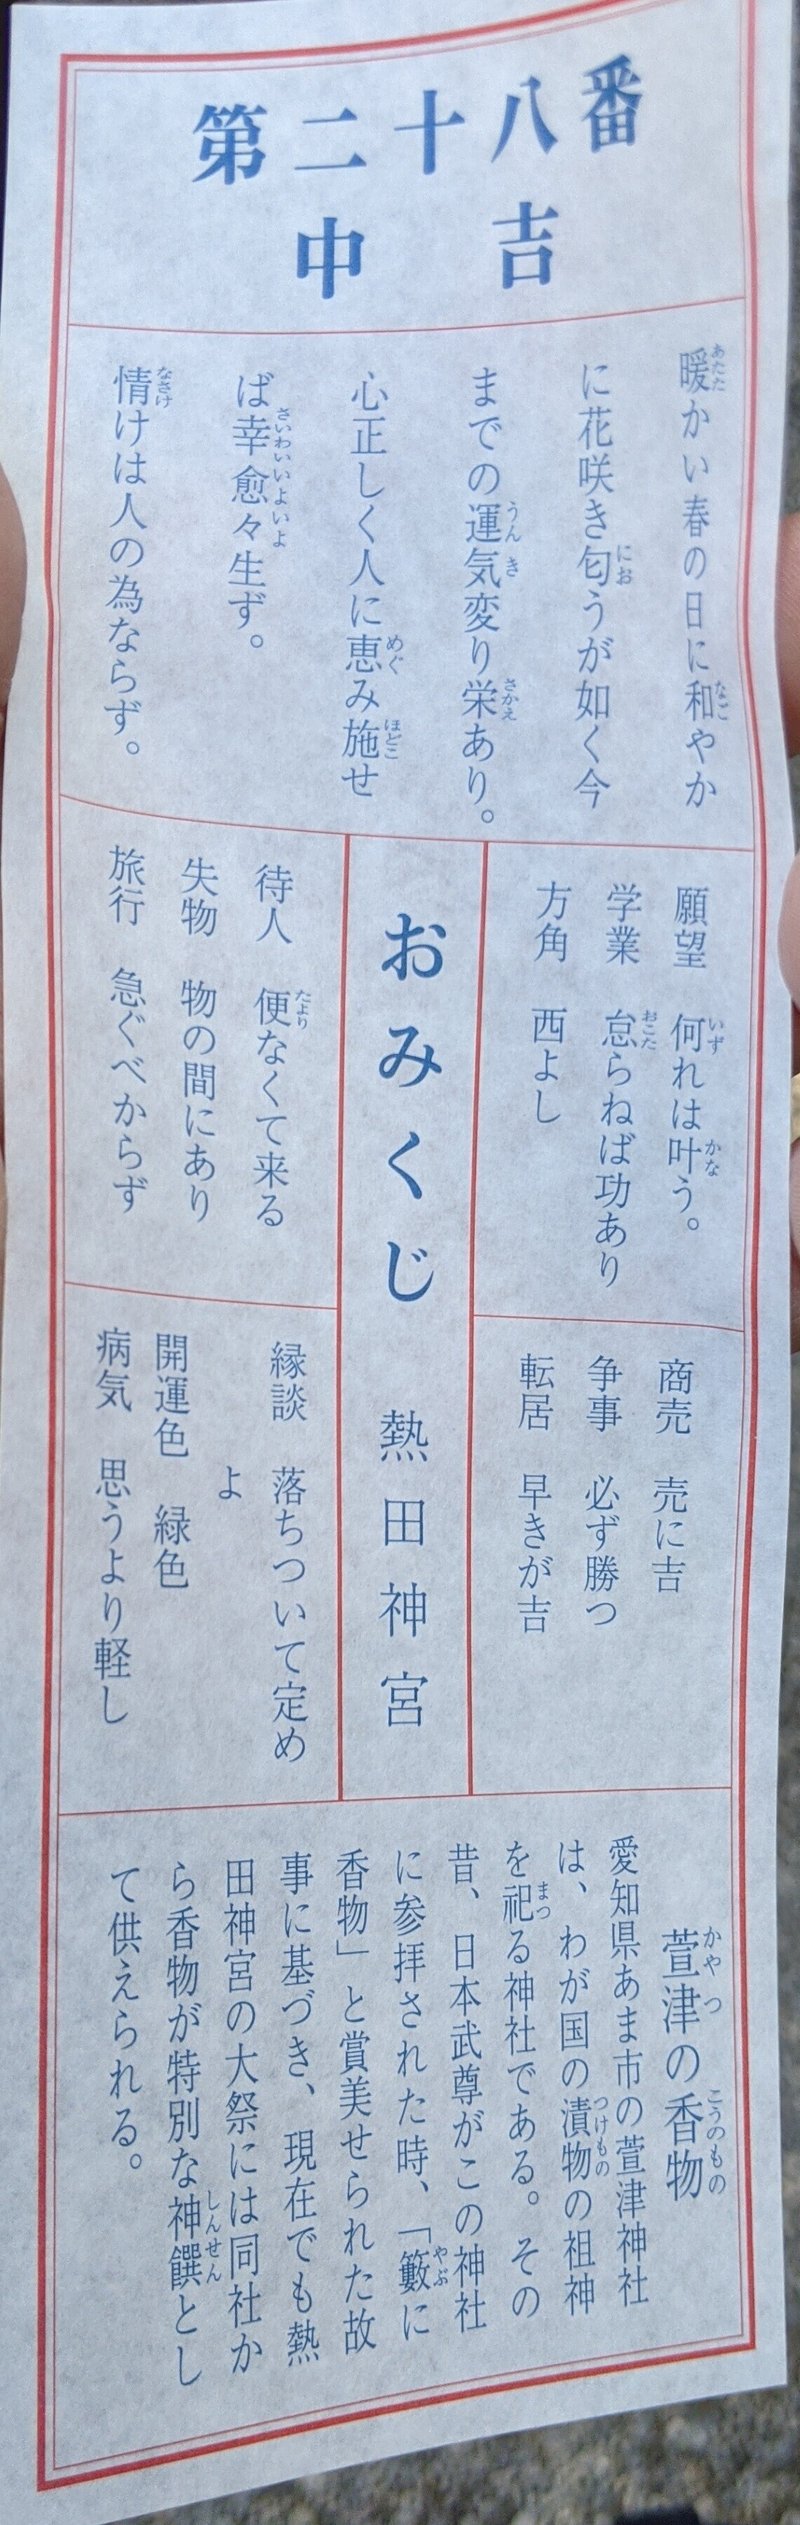 第二十八番
中吉
暖かい春の日に和やか
に花咲き匂うが如く今
までの運気変り栄あり。
心正しく人に恵み施せ
ば幸愈々生ず。
情けは人の為ならず。
願望 何れは叶う。
学業 怠らねば功あり
方角 西よし
商売 売に吉
争事 必ず勝つ
転居 早きが吉
おみくじ 熱田神宮
待人 便なくて来る
失物 物の間にあり
旅行 急ぐべからず
縁談 落ちついて定め
よ
開運色 緑色
病気 思うより軽し
萱津の香物
愛知県あま市の萱津神社
は、わが国の漬物の祖神
を祀る神社である。その
昔、日本武尊がこの神社
に参拝された時、「藪に
香物」と賞美せられた故
事に基づき、現在でも熱
田神宮の大祭には同社か
ら香物が特別な神饌とし
て供えられる。